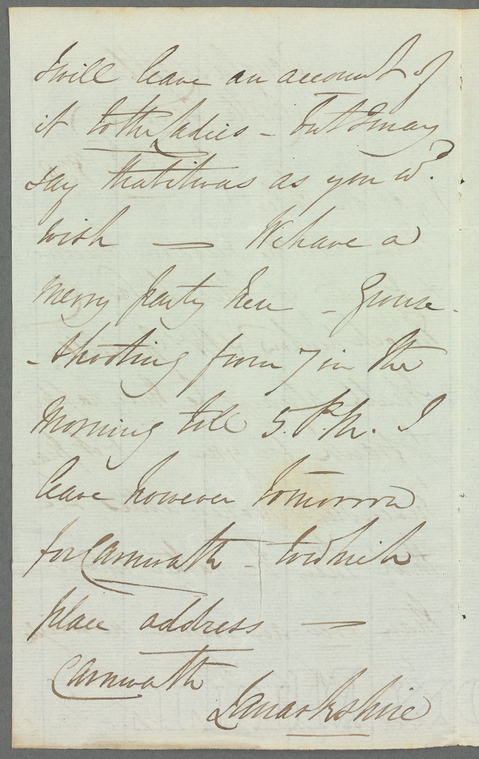 I will leave an account of
it to the Ladies – but I may
say that it was as you wd.
wish — We have a
merry party here – Grouse-
-shooting from 7 in the
morning till 5. P.M. I
leave however tomorrow
for Carnwath – to which
place address —
Carnwath
Lanarkshire